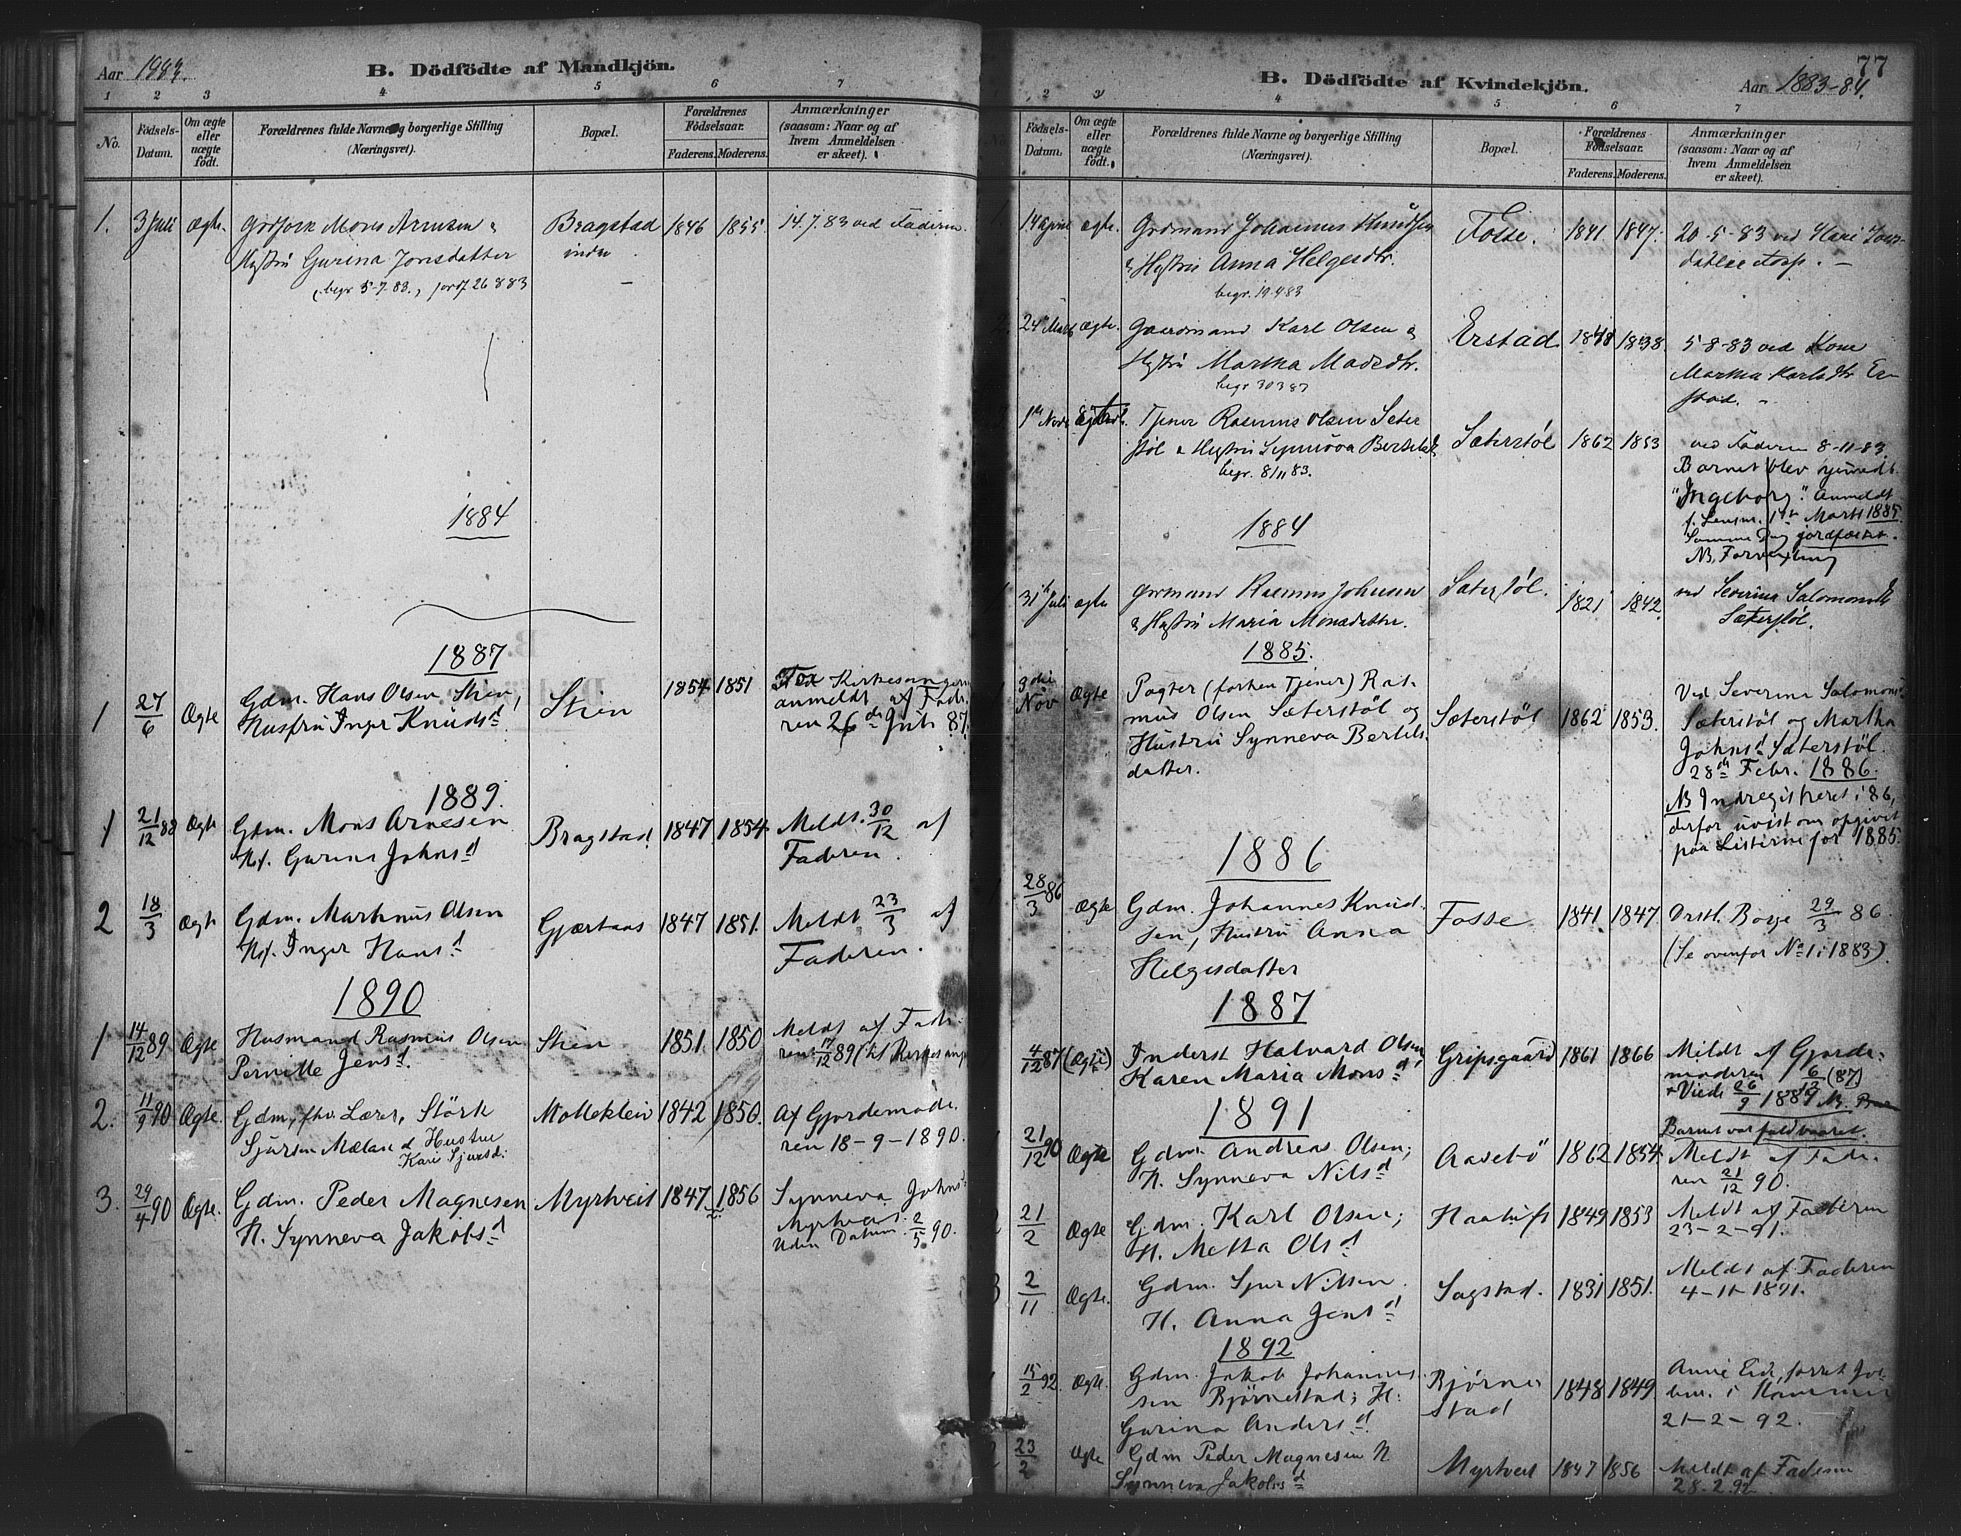 Aar 1883.
B. Dödfödte af Mandkjön.
1 2 3 4 5 6 7
No.
Födsels-Datum.
Om ægte eller uægte födt.
Forældrenes fulde Navne og borgerlige Stilling (Næringsvei).
Bopæl.
Forældrenes Födselsaar.
Faderens. Moderens.
Anmærkninger (saasom: Naar og af hvem Anmeldelsen er skeet).
1. 3 Juli ægte. Mons Arnesen & Bragstad 1846 1855 14.7.83 ved Faderen.
Hustru Gurina Jonsdatter indre
begr 5-7.83., jordf 26 8 83
1884
1887
1 27/6 Ægte Gdm. Hans Olsen Stien, Stien 1854 1851 Kirkesangeren
Hustru Inger Knudsd anmeldt af Fade-
ren 26de Juli 87.
1889.
1 21/12 88 Ægte Gdm. Mons Arnesen Bragstad 1847 1854 Meldt 30/12 af
H. Gurina Johnsd Faderen.
2 18/3 Ægte Gdm. Martinus Olsen Gjærtaas 1847 1851. Meldt 23/3 af
H. Inger Hansd Faderen.
1890
1 14/12 89. Ægte Husmand Rasmus Olsen Stien 1851. 1850 Meldt af Fade-
Pernille Jensd. ren 17/12 89
2. 11/9 90 Ægte. Gdm, fhv. Lærer, Störk Mollekleiv 1842 1850. Af Gjordemode-
Sjursen Mælan Hustru ren 18-9-1890.
Kari Sjursd.
3. 29/4 90 Ægte. Gdm. Peder Magnesen Myrtveit 1847 1856 Synneva Johns
H. Synneva Jakobsd Myrtveit.
Uden Datum. 2/5 90.
77
B. Dödfödte af Kvindekjön.
Aar 1883-84.
2 3 4 5 6 7
No.
Födsels-Datum.
Om ægte eller uægte födt.
Forældrenes fulde Navne og borgerlige Stilling (Næringsvei).
Bopæl.
Forældrenes Födselsaar.
Faderens. Moderens.
Anmærkninger (saasom: Naar og af hvem Anmeldelsen er skeet).
1. 14 April ægte. Grdmand Johannes Knudsen Fosse. 1841 1847. 20-5-83 ved Kari
& Hustru Anna Helgesdtr.
begr. 19.4.83
2. 24 Marts ægte. Gaardmand Karl Olsen & Erstad 1848 1838. 5-8-83 ved Kone
Hustru Martha Madsdtr. Martha Karlsdtr Er-
begr 30 3 83 stad.
3. 1ste Novb Tjener Rasmus Olsen Seter- Sæterstøl 1862 1853 ved Faderen 8-11-83.
støl & Hustru Synnöva Bertelsd Barnet blev hjemdt.
begr. 8/11 83. "Ingeborg". Anmeldt
f. Lensm. 1ste Marts 1885
Samme Dag jordfæstet.
NB. Forvexling
1884
31te Juli ægte Grdmand Rasmus Johnsen Sæterstøl. 1821 1842 ved Severina Salomonsd
& Hustru Maria Monsdatter. Sæterstøl.
1885.
3die Nov Ægte Pagter (forhen Tjener) Ras- Sæterstøl 1862 1853. Ved Severina Salomons
mus Olsen Sæterstøl og Sæterstøl og Martha
Hustru Synneva Bertels- Johnsd Sæterstøl.
datter. 28de Febr. 1886.
NB Indregistreret i 86,
derfor uvist om opgivet
paa Listerne for 1885.
1886
28/3 86 Ægte Gdm. Johannes Knud- Fosse 1841. 1847. Distl. Börje 29/3 86.
sen, Hustru Anna (Se ovenfor No 1 i 1883).
Helgesdatter
1887
4/12 87 (Ægte) Inderst Halvard Olsen Gripsgaard 1861 1866 Meldt af Gjorde-
Karen Maria Monsd moderen 6/12 (87)
Viede 26/9 1887 NB.
Barnet var fuldbaaret.
1891
21/12 90 Ægte Gdm. Andreas Olsen; Aasebö 1862 1854. Meldt af Fade-
H. Synneva Nilsd ren 21/12 90.
2 21/2 Ægte Gdm. Karl Olsen; Haatuft 1849 1853 Meldt af Faderen
H. Metta Olsd 23-2-91.
3 2/11 Ægte. Gdm. Sjur Nilsen. Sagstad. 1831 1851. Meldt af Faderen
H. Anna Jensd 4-11-1891.
1892
15/2 92. Ægte. Gdm. Jakob Johannes- Bjørne- 1848 1849 Anne Eid,
sen Bjørnestad; H. stad
Gurina Andersd 21-2-92.
23/2 Ægte Gdm Peder Magnesen H Myrtveit 1847 1856 Meldt af Faderen
Synneva Jakobsd 28.2.92